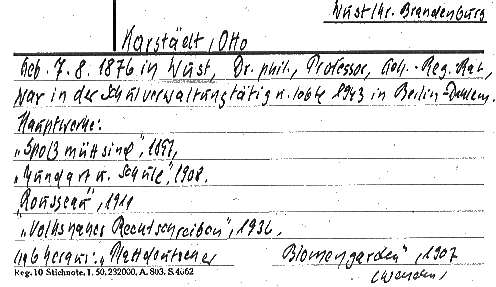 Wust/Kr. Brandenburg
Karstädt, Otto
Geb. 7.8.1876 in Wust, Dr. phil., Professor, Geh.-Reg.-Rat,
war in der Schulverwaltung tätig u. lebte 1943 in Berlin-Dahlem.
Hauptwerke:
„ 1897,
„Mundart u. Schule", 1908.
„Rousseau", 1911
„Volksnahes Rechtschreiben", 1936,
gab heraus: „Plattdeutscher Blomengarden", 1907
Reg. 10 Stichnote, I. 50, 232000, A. 803. S. 4662